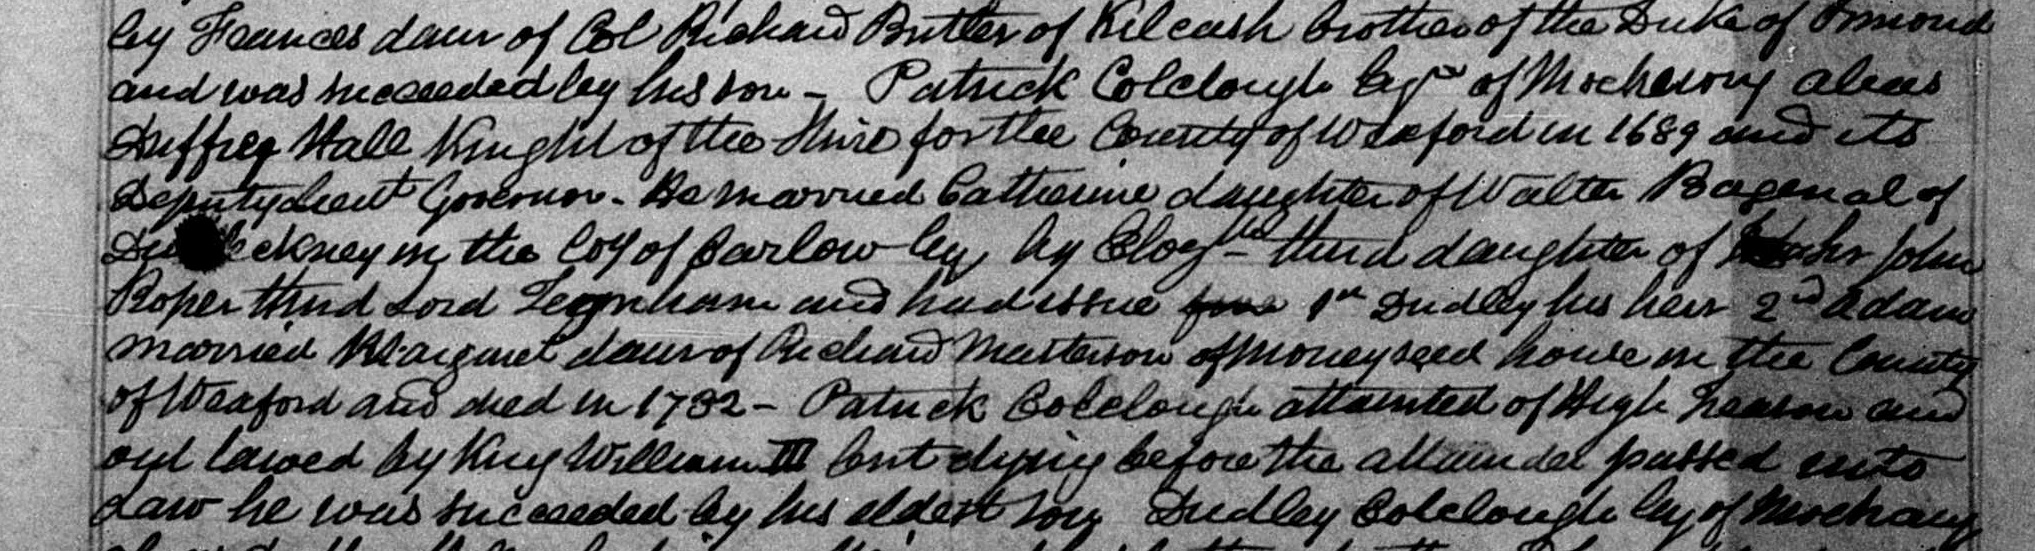 by Frances daur of Col Richard Butler of Kilcash brother of the Duke of Ormond
and was succeeded by his son - Patrick Colclough Esqre of Mochurry alias
Duffrey Hall Knight of the Shire for the County of Wexford in 1689 and its
Deputy Lieut Governor. He married Catherine daughter of Walter Bagenal of
ckney in the Coy of Carlow Esq by Elizth third daughter of John
Roper third Lord Teynham and had issue 1st Dudley his heir 2nd Adam
married Margaret daur of Richard Masterson of Moneyseed house in the County
of Wexford and died in 1732 - Patrick Colclough attainted of High Treason and
out lawed by King William III but dying before the attainder passed into
Law he was succeeded by his eldest son Dudley Colclough Esq of